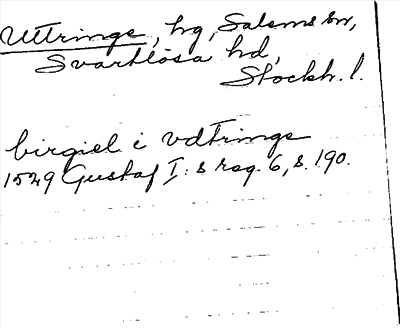 Uttringe, hg, Salems sn,
Svartlösa hd,
Stockh. l.
birgiel i vdtringe
1529 Gustaf I:s reg. 6, s. 190.